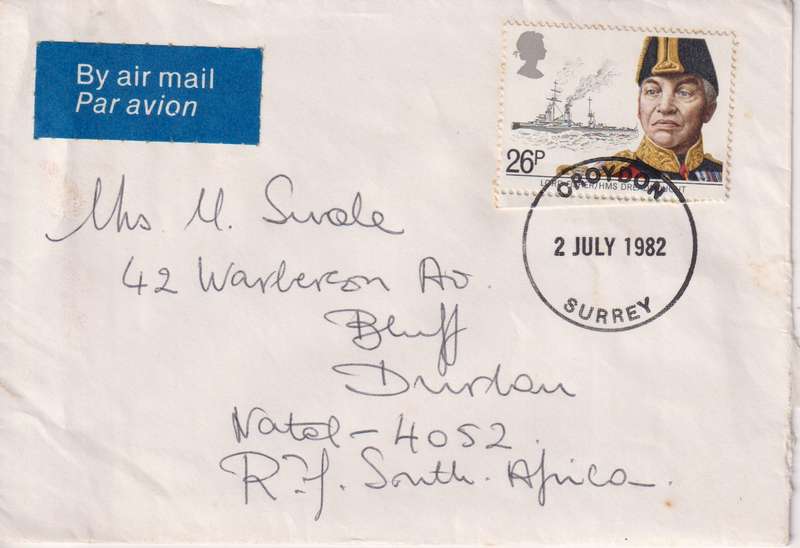 By air mail
Par avion
26P
LORD FISHER/HMS DREADNOUGHT
CROYDON
2 JULY 1982
SURREY
Mrs M. Swale
42 Warberson Av.
Bluff
Durban
Natal - 4052.
R.of. South. Africa.